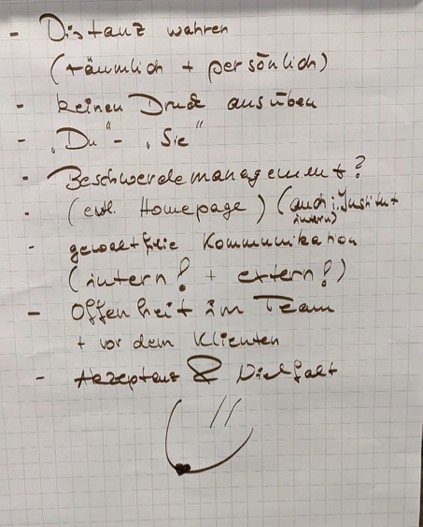 - Distanz wahren
(räumlich + persönlich)
- keinen Druck ausüben
- "Du" - "Sie"
- Beschwerdemanagement?
- (evtl. Homepage) (auch i. Institut
intern)
- gewaltfreie Kommunikation
(intern! + extern!)
- Offenheit im Team
+ vor dem Klienten
- Akzeptanz & Vielfalt